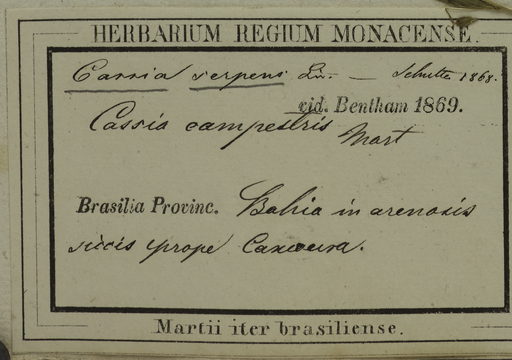 HERBARIUM REGIUM MONACENSE.
Cassia serpens Lin. — Schulte 1868.
vid. Bentham 1869.
Cassia campestris
Mart
Brasilia Provinc. Bahia in arenosis
siccis prope
Martii iter brasiliense.